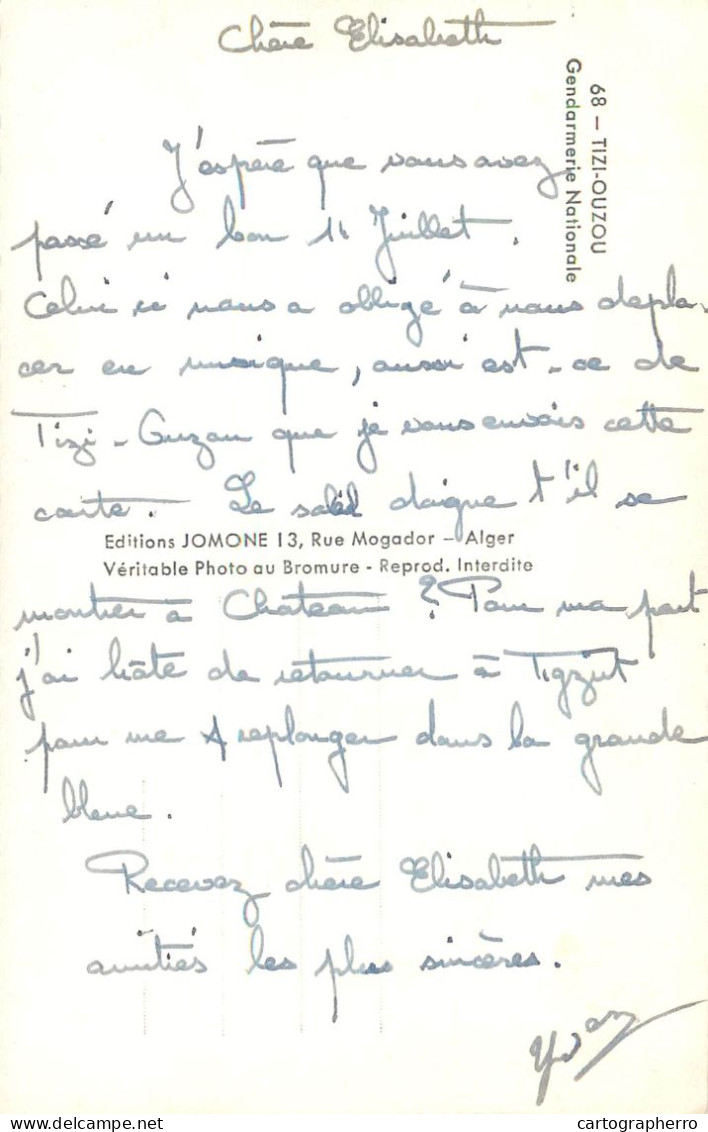 Chère Elisabeth
68 — TIZI-OUZOU
Gendarmerie Nationale
J'espère que vous avez
passé un bon 14 Juillet.
Celui ci nous a obligé à nous dépla-
cer en musique, aussi est-ce de
Tizi-Ouzou que je vous envois cette
carte. Le soleil daigne t'il se
Editions JOMONE 13, Rue Mogador — Alger
Véritable Photo au Bromure - Reprod. Interdite
montrer à Chateau ? Pour ma part
j'ai hâte de retourner à Tigzirt
pour me replonger dans la grande
bleue.
Recevez chère Elisabeth mes
amitiés les plus sincères.
Yvan
delcampe.net
cartographerro